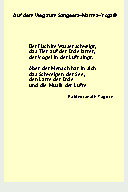 Auf dem Weg zum Sangeeta-Mantra-Yoga®
Der Fisch im Wasser schweigt,
das Tier auf der Erde lärmt,
der Vogel in der Luft singt.
Aber der Mensch hat in sich
das Schweigen der See,
den Lärm der Erde
und die Musik der Lüfte
Rabindranath Tagore